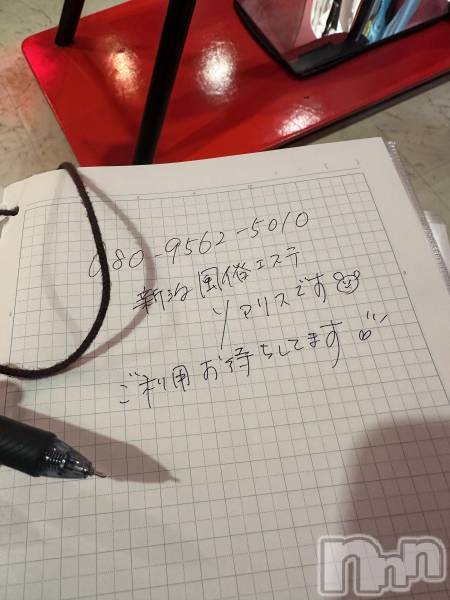 080-9562-5010
新潟 風俗エステ
ソアリスです
ご利用お待ちしてます
nnn